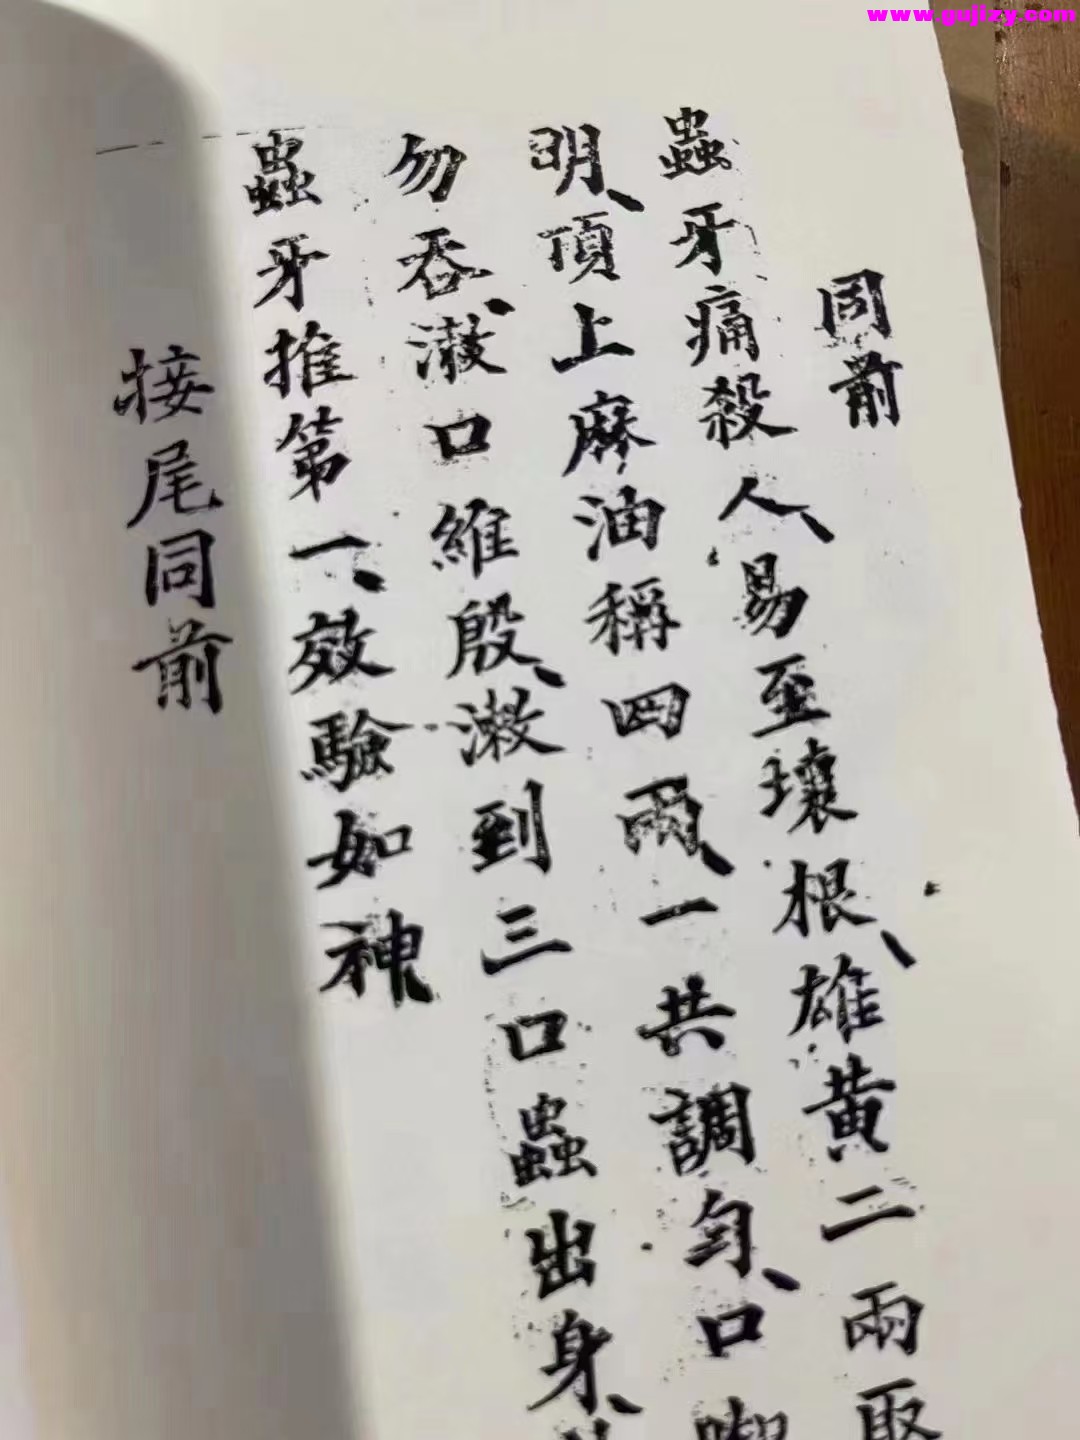 www.gujizy.com
同前
蟲牙痛殺人、易至壞根、雄黃二兩取
明、頂上麻油稱四兩、一共調勻、口
勿吞、漱口維殷、漱到三口蟲出身、
蟲牙推第一、效驗如神
接尾同前